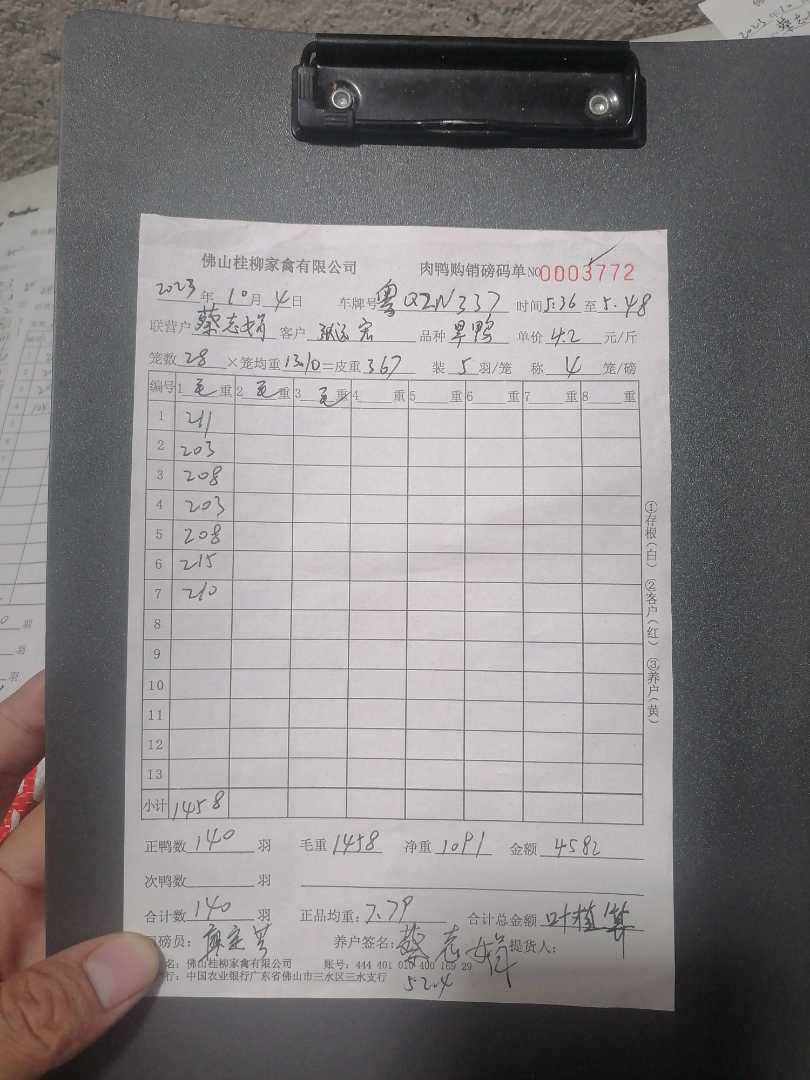 佛山桂柳家禽有限公司 肉鸭购销磅码单 NO 0003772
2023年10月4日 车牌号粤QZN337 时间5:36至5:48
联营户蔡志娟 客户 宏 品种旱鸭 单价4.2元/斤
笼数28×笼均重13.10=皮重367 装5羽/笼 称4笼/磅
编号 1毛重 2毛重 3毛重 4重 5重 6重 7重 8重
1 211
2 203
3 208
4 203
5 208
6 215
7 210
8
9
10
11
12
13
小计 1458
正鸭数140羽 毛重1458 净重1091 金额4582
次鸭数 羽
合计数140羽 正品均重:7.79 合计总金额 叶植
磅员: 养户签名:蔡志娟 提货人:
名:佛山桂柳家禽有限公司 账号:444 401 010 400 169 29
行:中国农业银行广东省佛山市三水区三水支行
5204
①存根(白) ②客户(红) ③养户(黄)